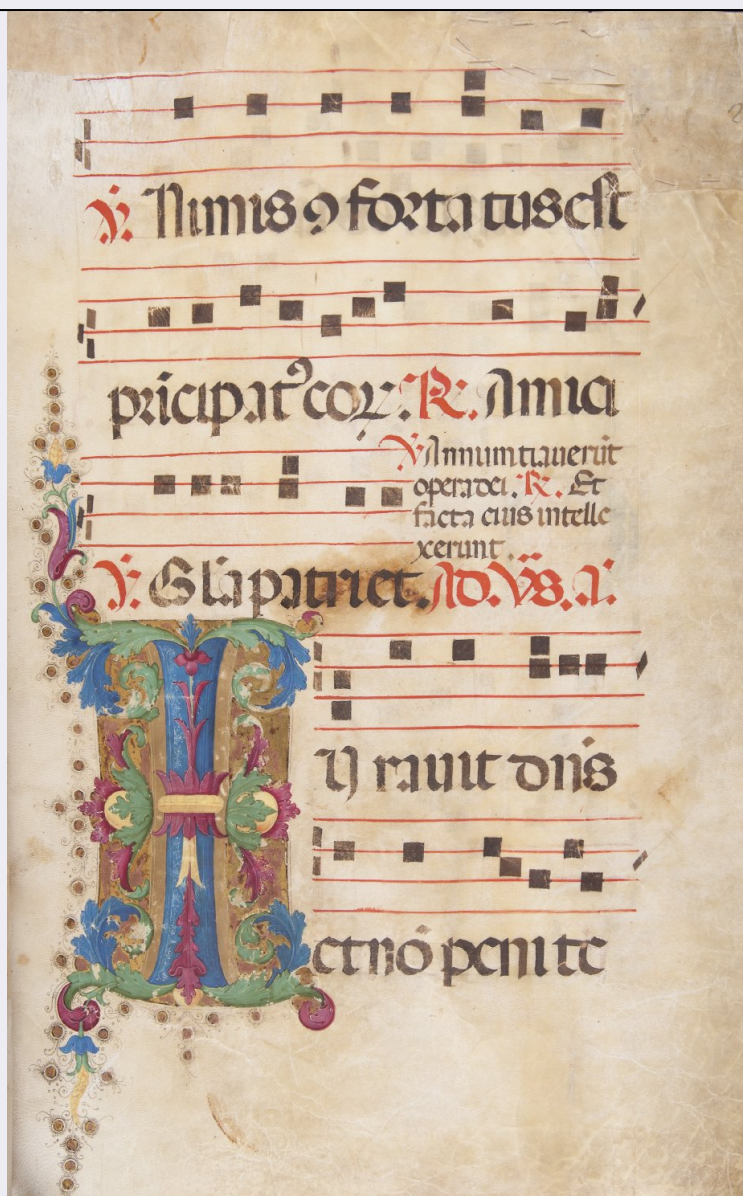 ℣. Nimis ꝯfortatus est
pricipatꝰ eoꝝ. ℟. Amici
℣. Annuntiauerūt
opera dei. ℟. Et
facta eius intelle
xerunt.
℣. Gl̄a patri et. Ad. Vs̄. a.
IUrauit dn̄s
et nō penite